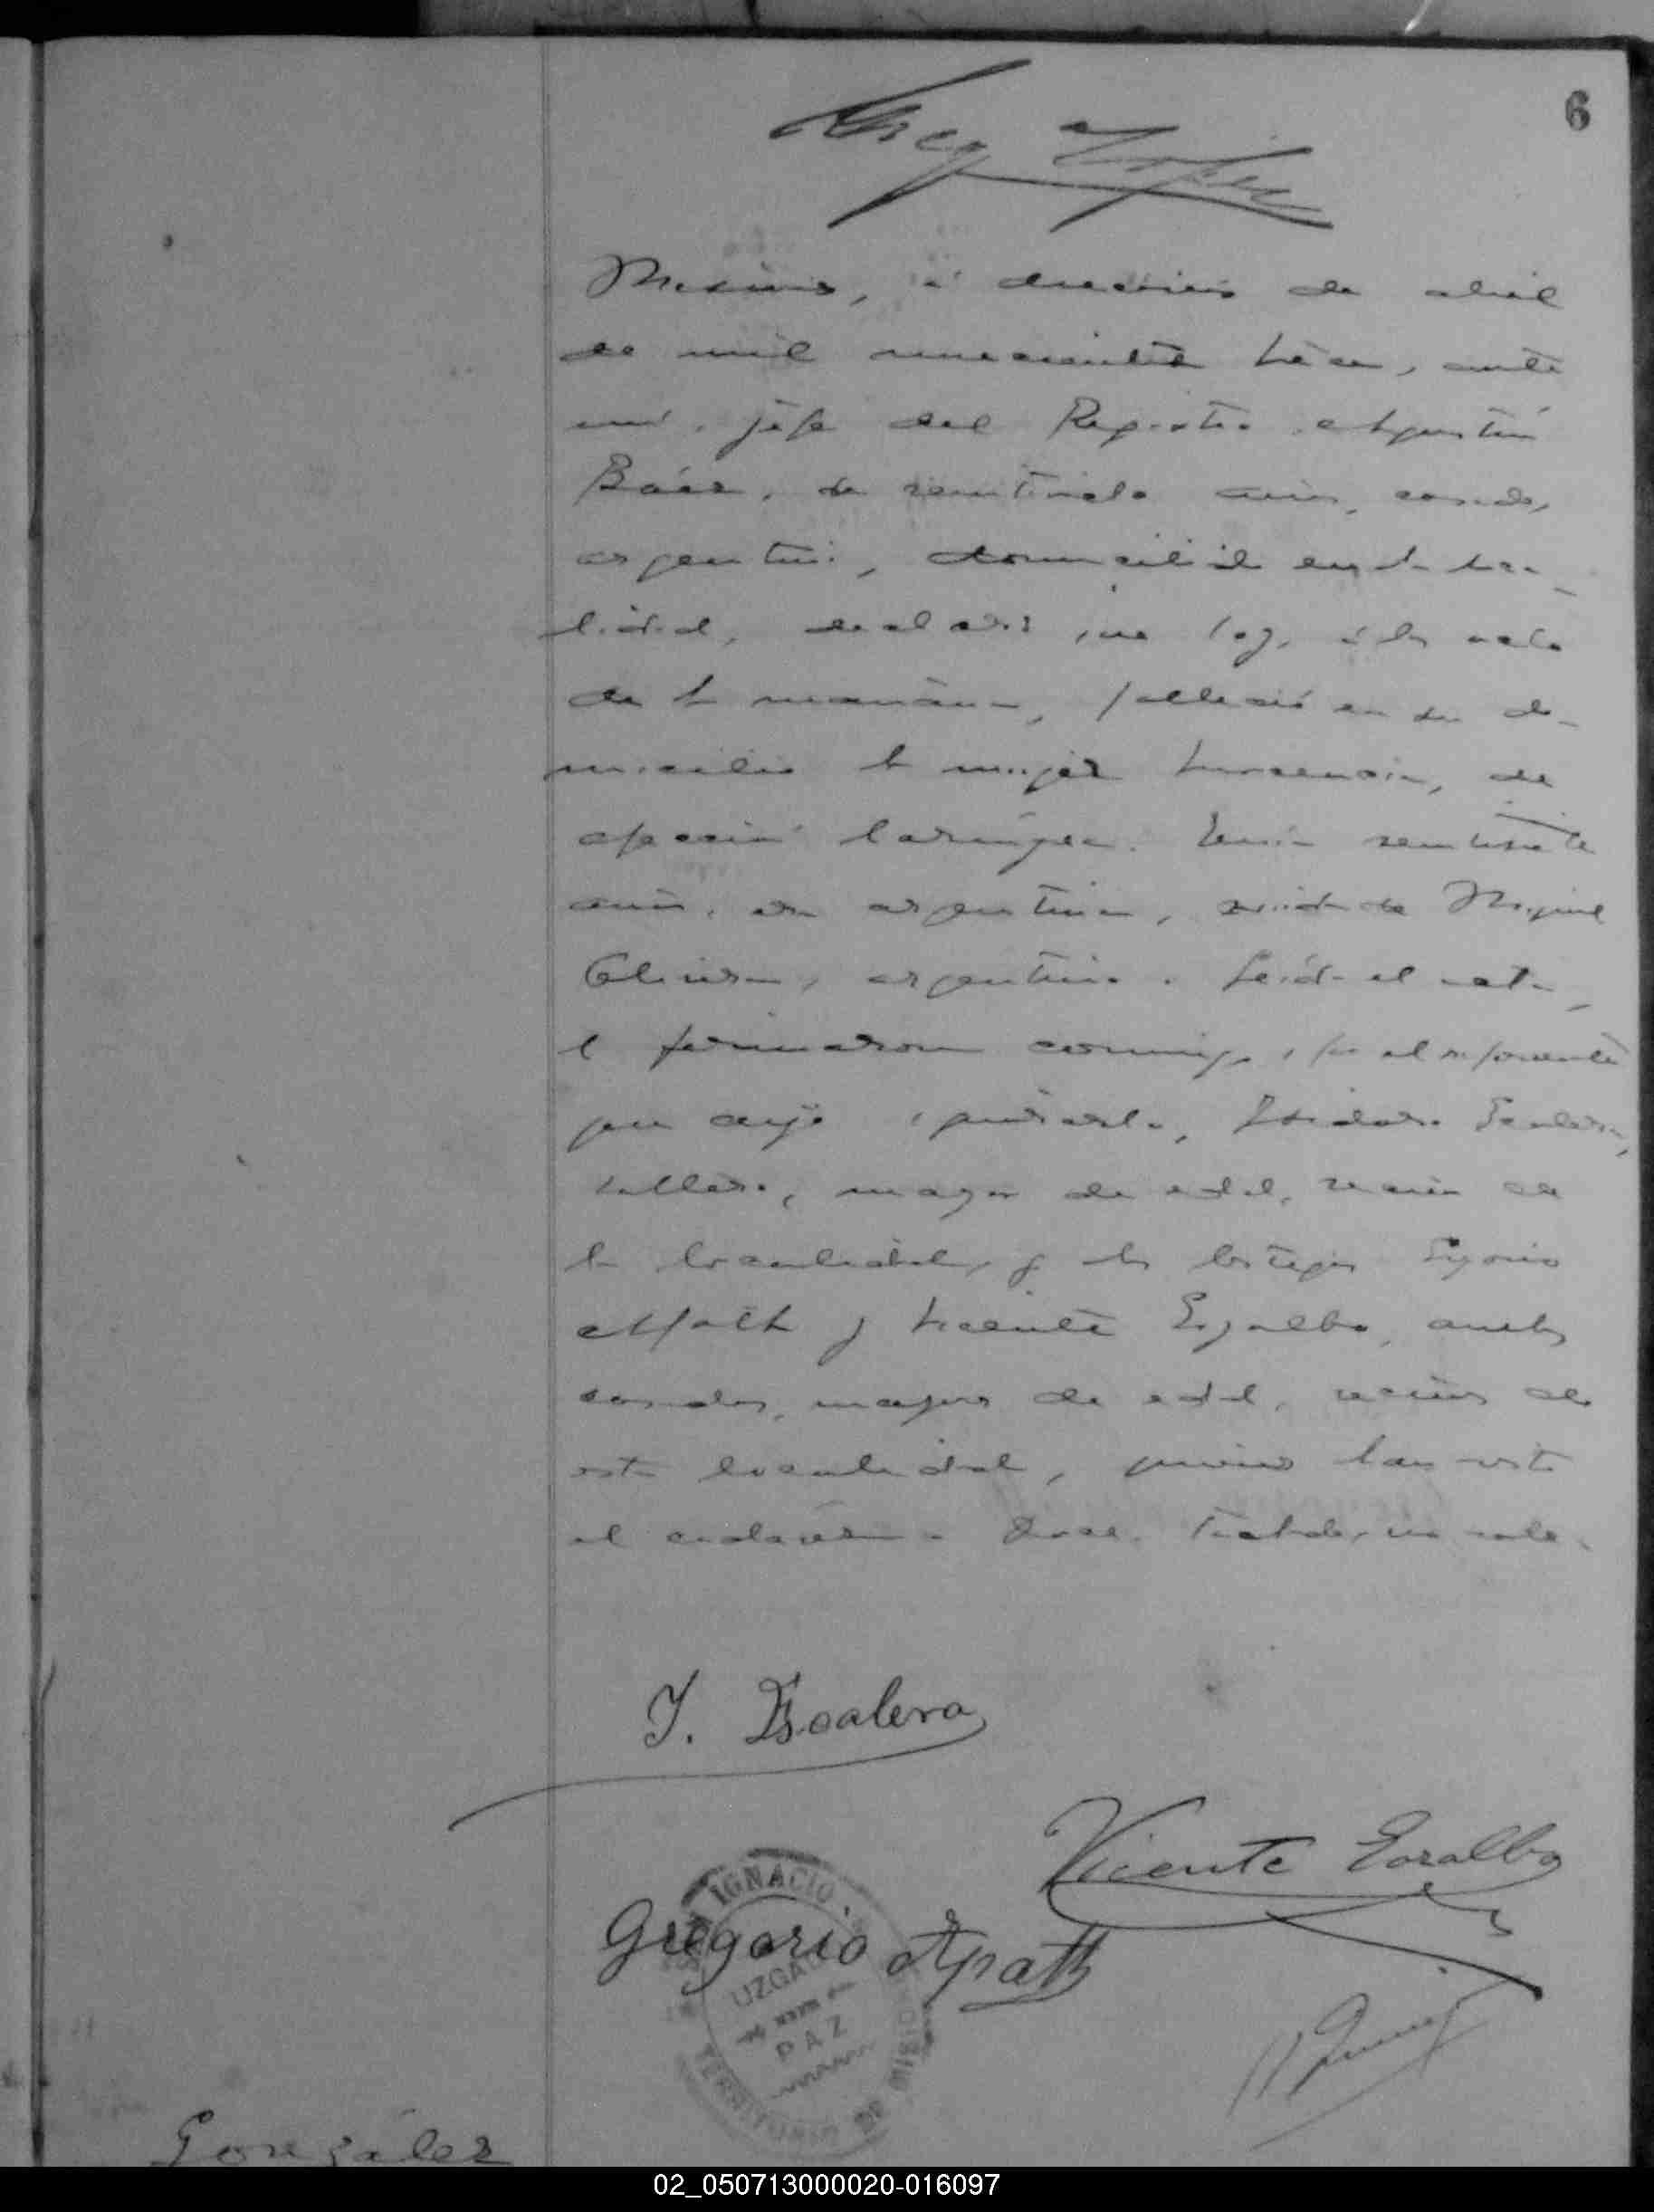 6
Misiones, á dieciseis de abril
de mil novecientos trece, ante
mí, jefe del Registro, Agustín
Báez, de veintinueve años, casado,
argentino, domiciliado en la loca-
lidad, declaró que hoy, á las ocho
de la mañana, falleció en su do-
micilio la mujer Inocencia, de
afección laríngea. Tenía veintisiete
años, era argentina, viuda de Miguel
Olivera, argentino. Leída el acta,
la firmaron conmigo, por el exponente
que dijo ignorarlo, Isidoro Escalera,
soltero, mayor de edad, vecino de
la localidad, y los testigos Gregorio
Apatt y Vicente Esralbo, ambos
casados, mayores de edad, vecinos de
esta localidad, quienes han visto
el cadáver.
I. Escalera
Vicente Esralbo
Gregorio Apatt
SAN IGNACIO
JUZGADO
PAZ
TERRITORIO DE MISIONES
González
02_050713000020-016097